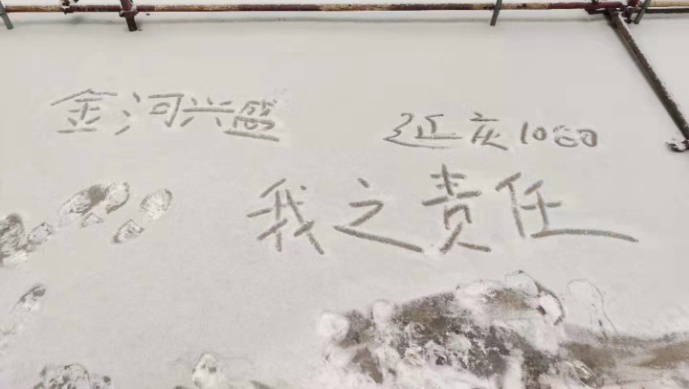 金河兴盛
近灰1080
我之责任